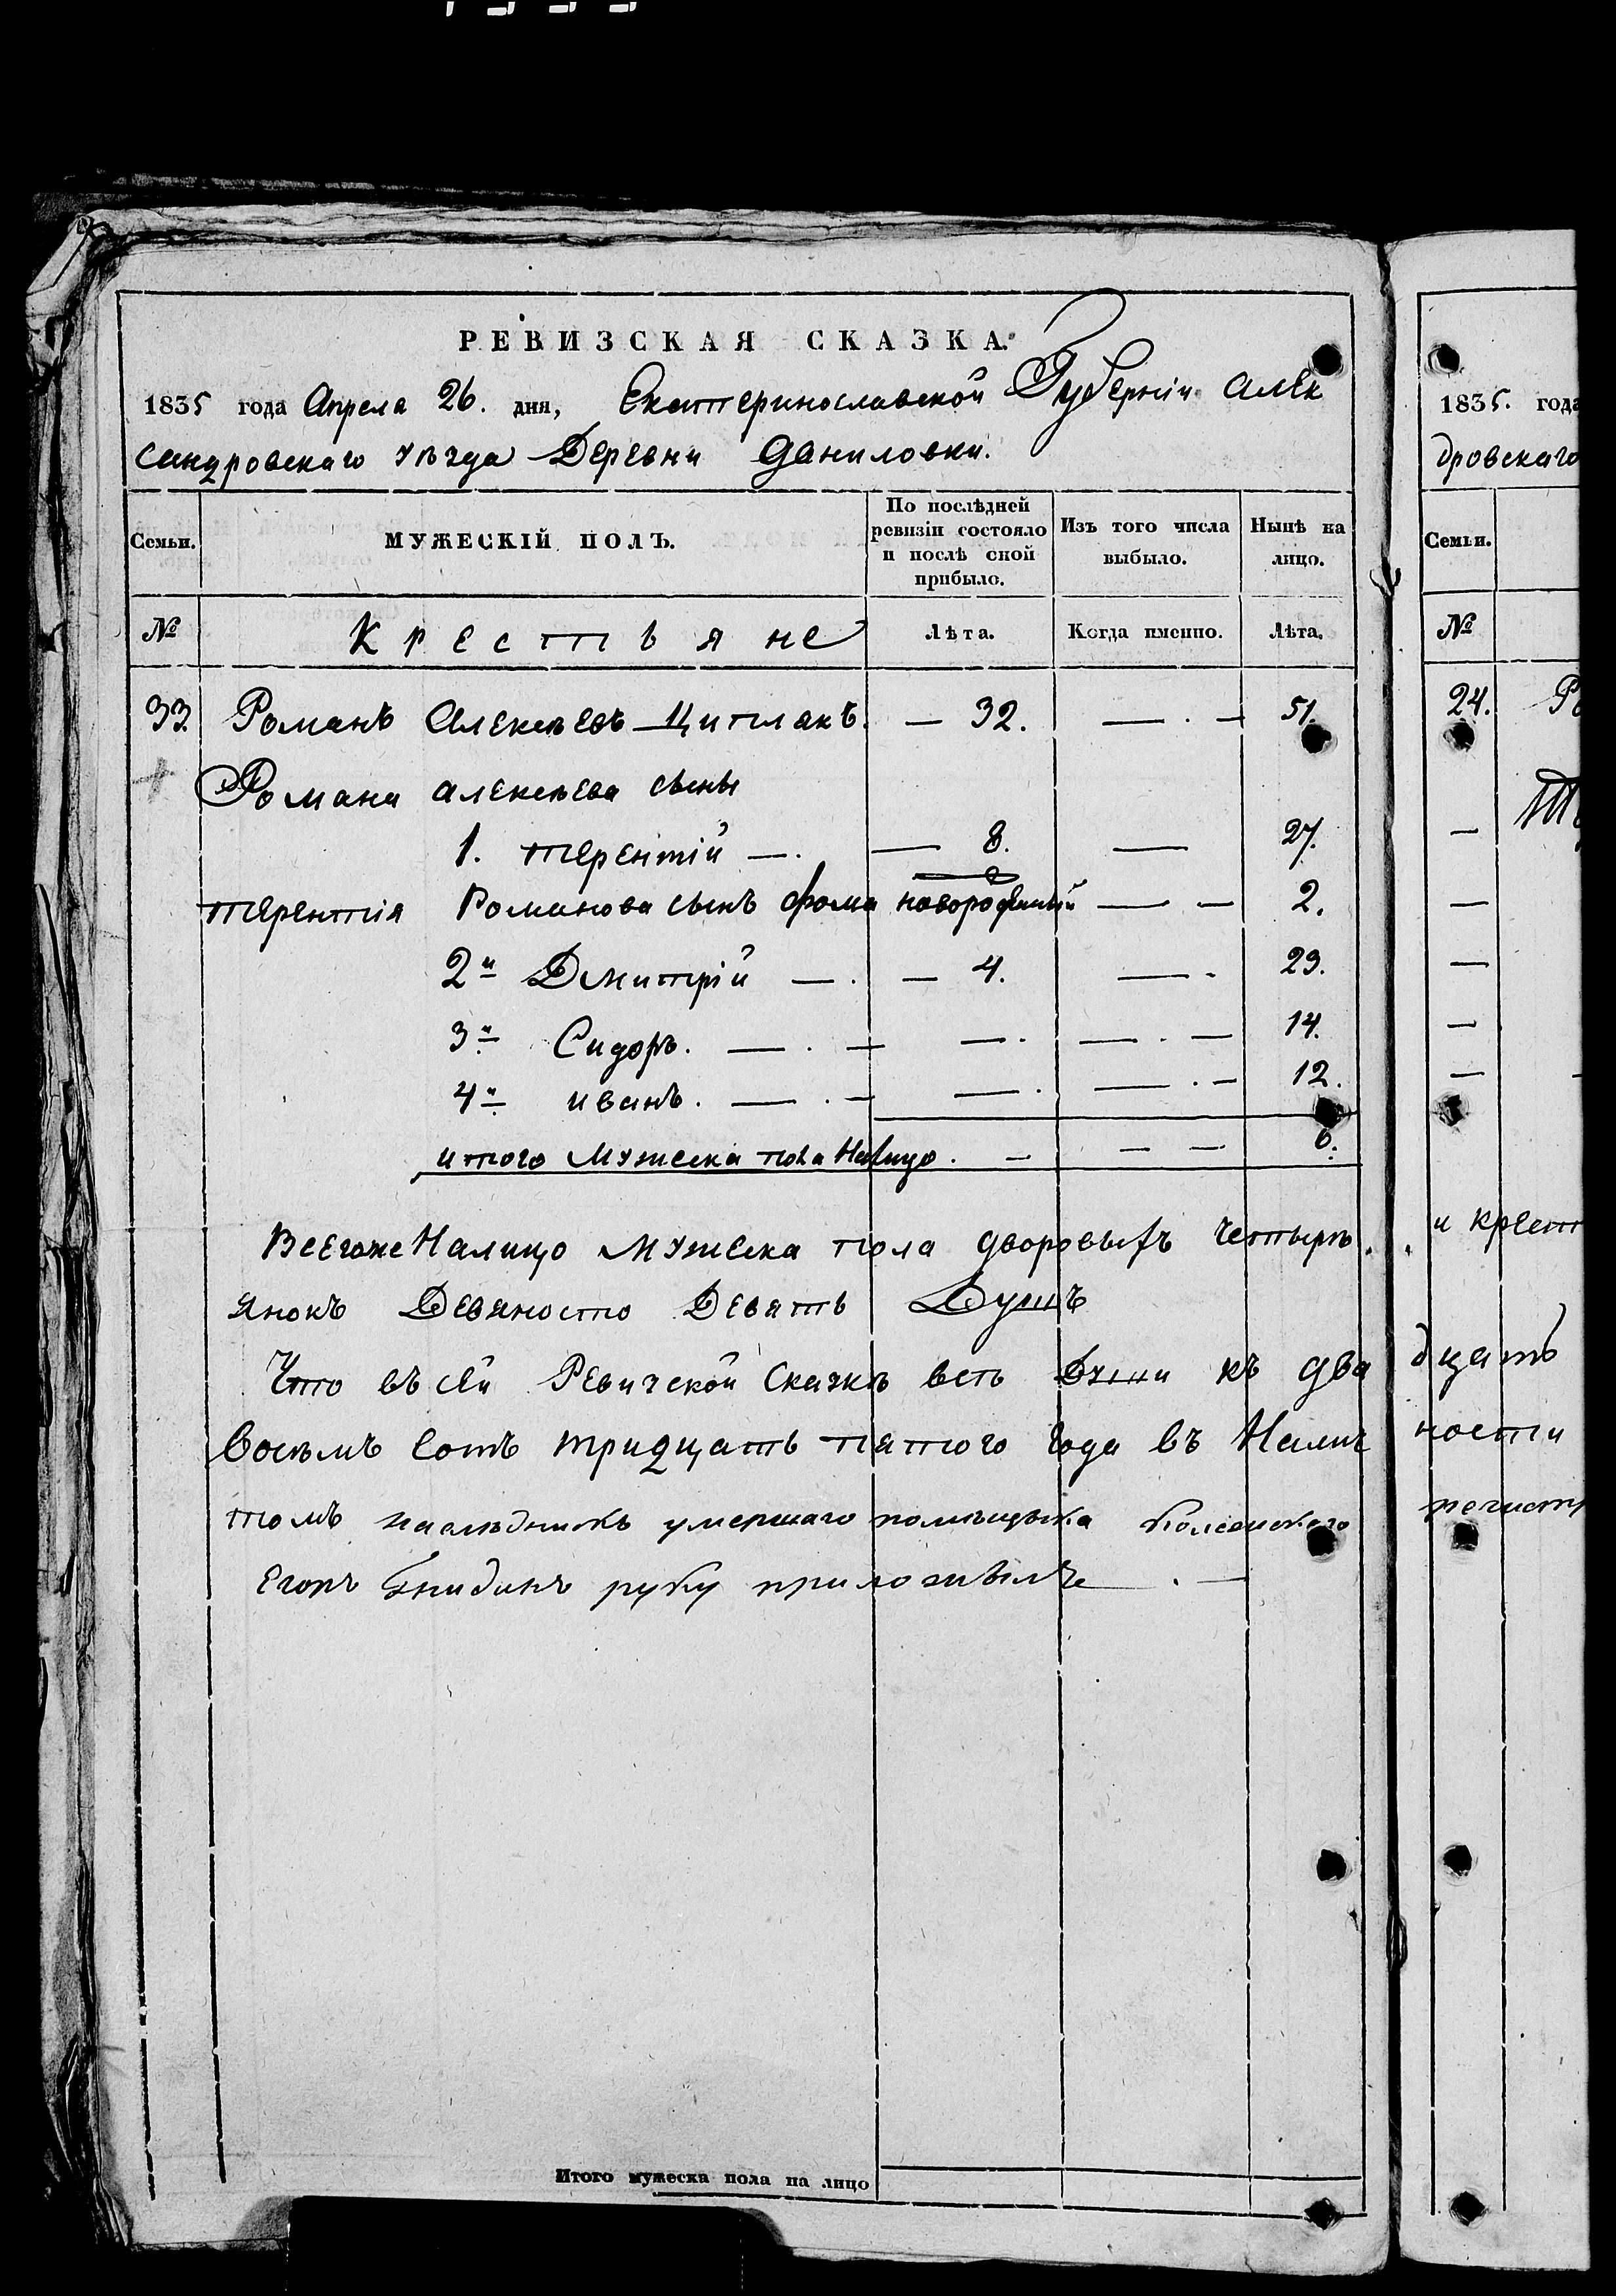 РЕВИЗСКАЯ СКАЗКА.
1835 года Апреля 26. дня, Екатеринославской Губерніи Алек
сандровскаго уѣзда Деревни Даниловки.
Семьи.
МУЖЕСКІЙ ПОЛЪ.
По послѣдней ревизіи состояло и послѣ оной прибыло.
Изъ того числа выбыло.
Нынѣ на лицо.
№
Крестьяне
Лѣта.
Когда именно.
Лѣта.
33. Романъ Алексѣевъ Цитлакъ. — 32. — . — 51.
Романа алексѣева сыны
1. терентій — . — 8. — 27.
терентія Романова сынъ фома новорожденный — — 2.
2й Дмитрій — . — 4. — . 23.
3й Сидоръ. — . — — . — . — 14.
4й иванъ. — . — — . — . — 12.
итого Мужеска пола Налицо. — — — 6.
ВсегожеНалицо мужеска пола дворовыхъ Четыре.
янокъ Девяносто Девять Душъ
Что въ сей Ревизской Сказкѣ всѣ Души къ два
восѣмъ сотъ тридцать пятого года въ Налич
томъ наслѣдникъ умершаго помѣщика
Егоръ руку приложилъ — . —
Итого мужеска пола на лицо
1835. года
дровскаго
Семьи.
№
24.
и крест
дцать
ности